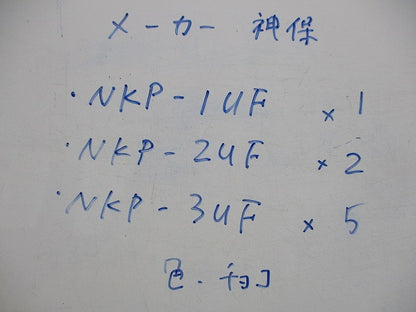 メーカー 神保
・NKP-1UF × 1
・NKP-2UF × 2
・NKP-3UF × 5
色.チョコ